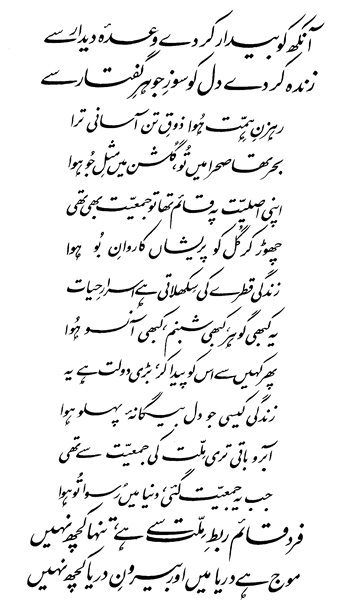 آنکھ کو بیدار کر دے وعدۂ دیدار سے
زندہ کر دے دل کو سوزِ جوہرِ گفتار سے
رہزنِ ہمت ہوا ذوقِ تن آسانی ترا
بحر تھا صحرا میں تو، گلشن میں مثلِ جو ہوا
اپنی اصلیت پہ قائم تھا تو جمعیت بھی تھی
چھوڑ کر گل کو پریشاں کاروانِ بو ہوا
زندگی قطرے کی سکھلاتی ہے اسرارِ حیات
یہ کبھی گوہر، کبھی شبنم، کبھی آنسو ہوا
پھر کہیں سے اس کو پیدا کر، بڑی دولت ہے یہ
زندگی کیسی جو دل بیگانۂ پہلو ہوا
آبرو باقی تری ملت کی جمعیت سے تھی
جب یہ جمعیت گئی، دنیا میں رسوا تو ہوا
فرد قائم ربطِ ملت سے ہے، تنہا کچھ نہیں
موج ہے دریا میں اور بیرونِ دریا کچھ نہیں